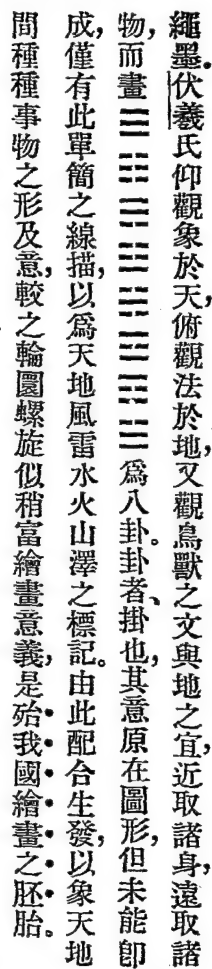 繩墨。伏羲氏仰觀象於天,俯觀法於地,又觀鳥獸之文與地之宜,近取諸身,遠取諸
物,而畫☰☷☴☳☵☲☶☱爲八卦。卦者、掛也,其意原在圖形,但未能卽
成,僅有此單簡之線描,以爲天地風雷水火山澤之標記。由此配合生發,以象天地
間種種事物之形及意,較之輪圜螺旋似稍富繪畫意義,是殆我國繪畫之胚胎。